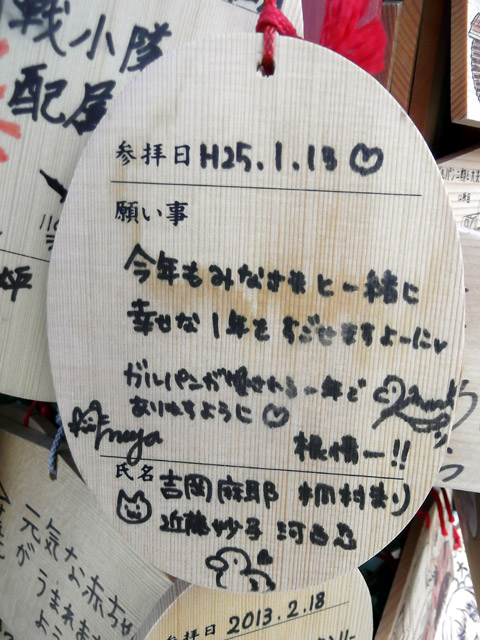 戦小隊
配属
参拝日 H25.1.13♡
願い事
今年もみなさまと一緒に
幸せな1年をすごせますよーに♥
ガルパンが愛される一年で
ありますように♡
maya
根情ー!!
氏名 吉岡麻耶
近藤妙子 河西忍
元気な赤ちゃ
が うまれま
よう
参拝日 2013.2.18